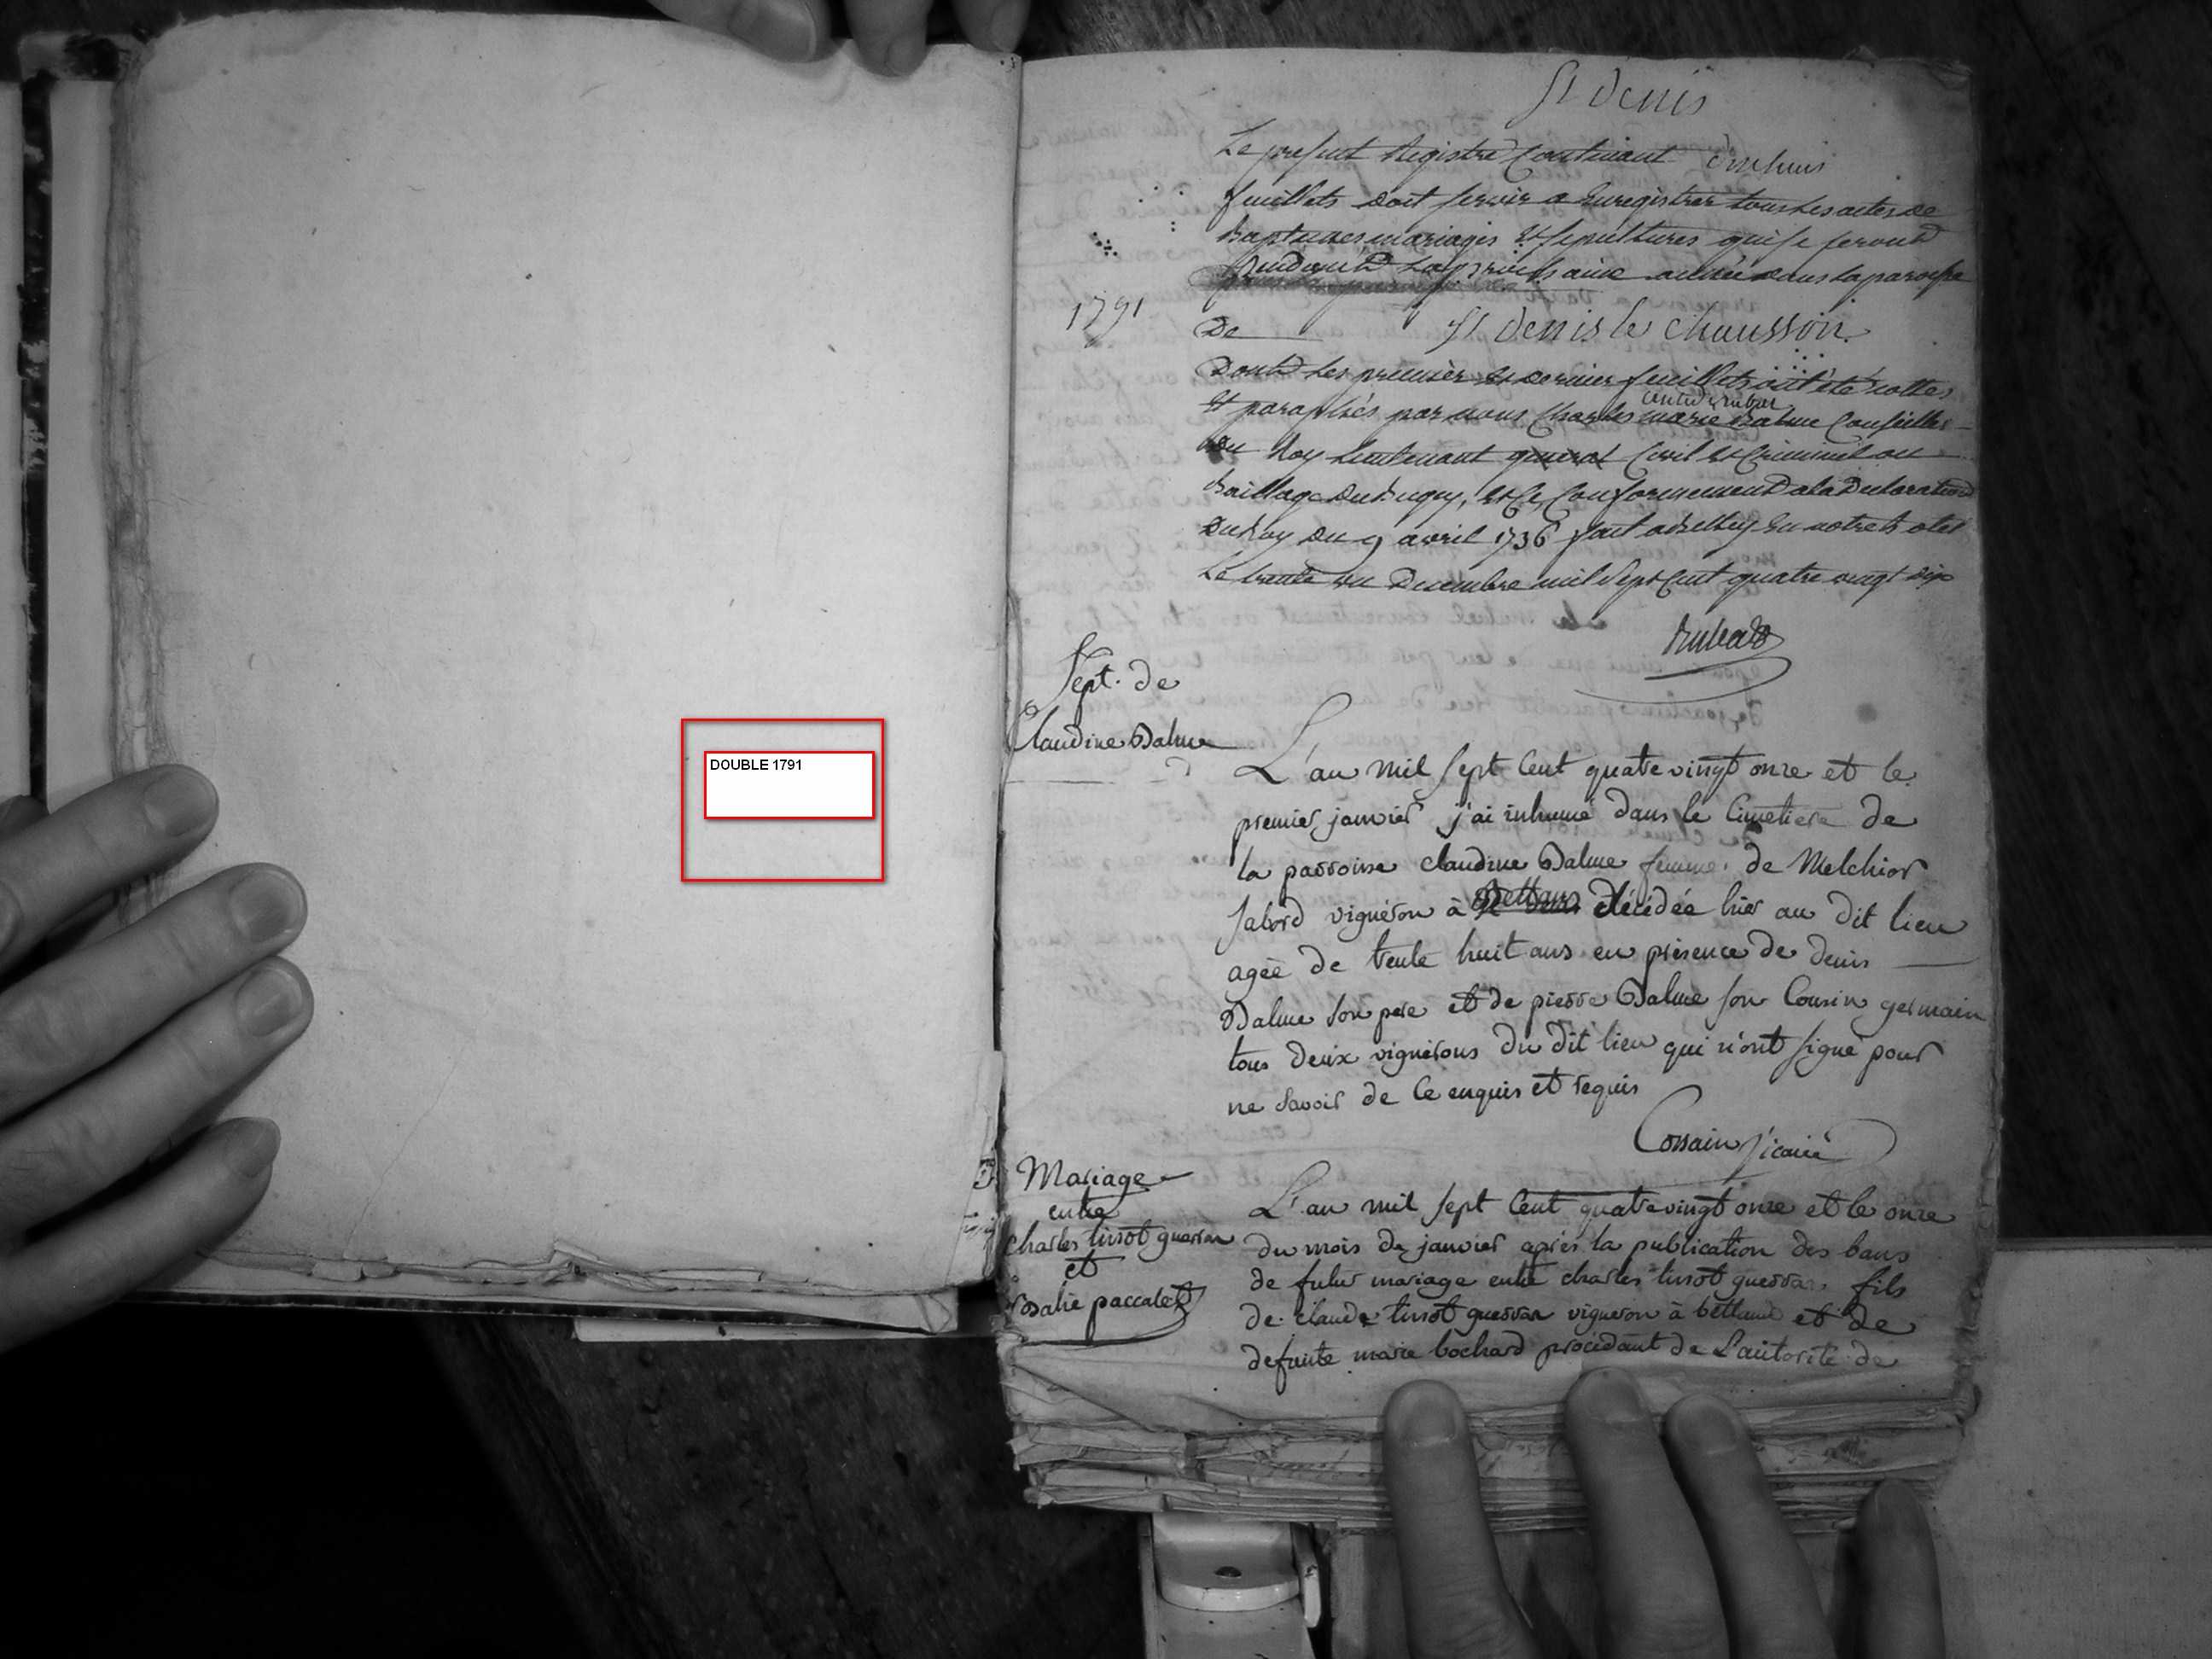 DOUBLE 1791
St denis
Le present Registre Contenant dixhuit
feuillets doit servir a Enregistrer tous les actes de
Baptemes mariages et sepultures qui se feront
pendant la prochaine année dans la paroisse
1791
De St denis le chausson
Dont Les premier et dernier feuillets ont été cottés
Et paraphés par nous Charles marie Balme Conseiller
du Roy Lieutenant general Civil et Criminel au
Baillage du Bugey, et Ce Conformement a la Declaration
du Roy du 9 avril 1736 fait a Belley En notre hotel
Le trente un Decembre mil sept Cent quatre vingt dix
Rubat
Sept. de
Claudine Balme
L'an mil sept Cent quatre vingt onze et le
premier janvier j'ai inhumé dans le Cimetiere de
la parroisse claudine Balme femme de Melchior
Jabord vigneron à Bettans décédée hier au dit lieu
agée de trente huit ans en présence de denis
Balme son pere et de pierre Balme son Cousin germain
tous deux vignerons du dit lieu qui n'ont signé pour
ne savoir de Ce enquis et requis
Cossain vicaire
Mariage
entre
Charles tissot guerran
et
Rosalie paccalet
L'an mil sept Cent quatre vingt onze et le onze
du mois de janvier après la publication des bans
de futur mariage entre charles tissot guerran fils
de claude tissot guerran vigneron à bettans et de
defunte marie bochard procédant de L'autorité de